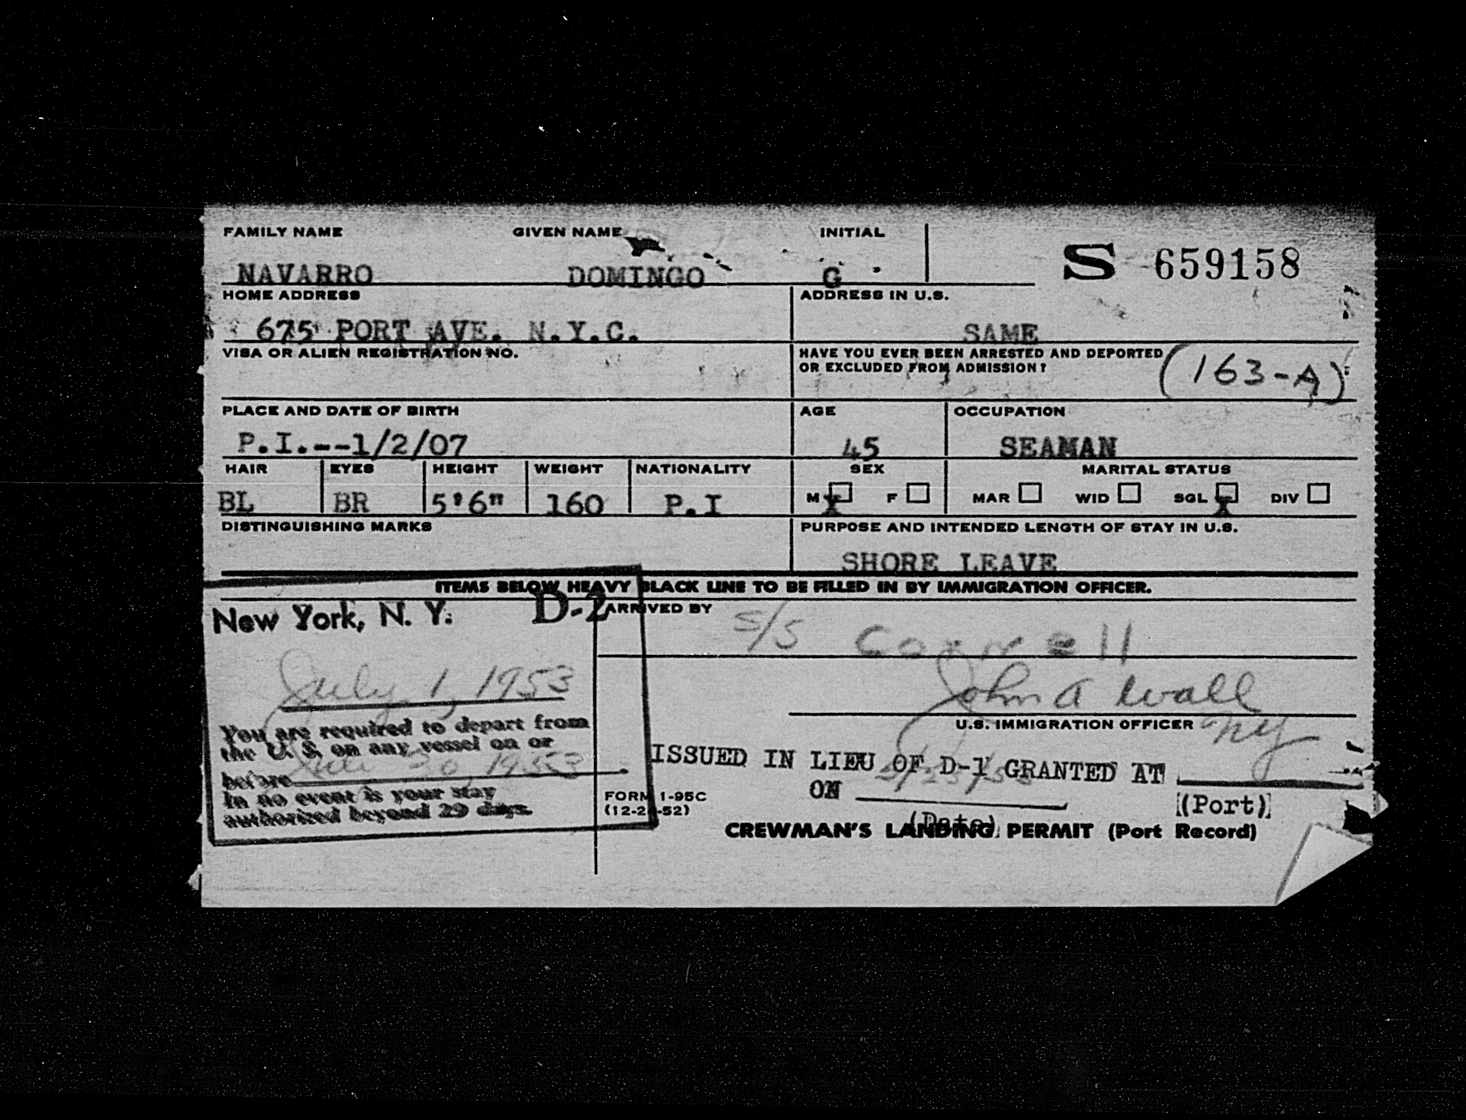 FAMILY NAME GIVEN NAME INITIAL
S 659158
NAVARRO DOMINGO G.
HOME ADDRESS ADDRESS IN U.S.
675 PORT AVE. N.Y.C. SAME
VISA OR ALIEN REGISTRATION NO. HAVE YOU EVER BEEN ARRESTED AND DEPORTED
OR EXCLUDED FROM ADMISSION? (163-A)
PLACE AND DATE OF BIRTH AGE OCCUPATION
P.I.--1/2/07 45 SEAMAN
HAIR EYES HEIGHT WEIGHT NATIONALITY SEX MARITAL STATUS
BL BR 5'6" 160 P.I M X F MAR WID SGL X DIV
DISTINGUISHING MARKS PURPOSE AND INTENDED LENGTH OF STAY IN U.S.
SHORE LEAVE
ITEMS BELOW HEAVY BLACK LINE TO BE FILLED IN BY IMMIGRATION OFFICER.
New York, N. Y. D-2 ARRIVED BY S/S Cornell
July 1, 1953 John A Wall
U.S. IMMIGRATION OFFICER
You are required to depart from
the U. S. on any vessel on or
before 1953
In no event is your stay
authorized beyond 29 days.
ISSUED IN LIEU OF D-1 GRANTED AT NY
ON (Port)
(Date)
FORM I-95C
(12-24-52)
CREWMAN'S LANDING PERMIT (Port Record)